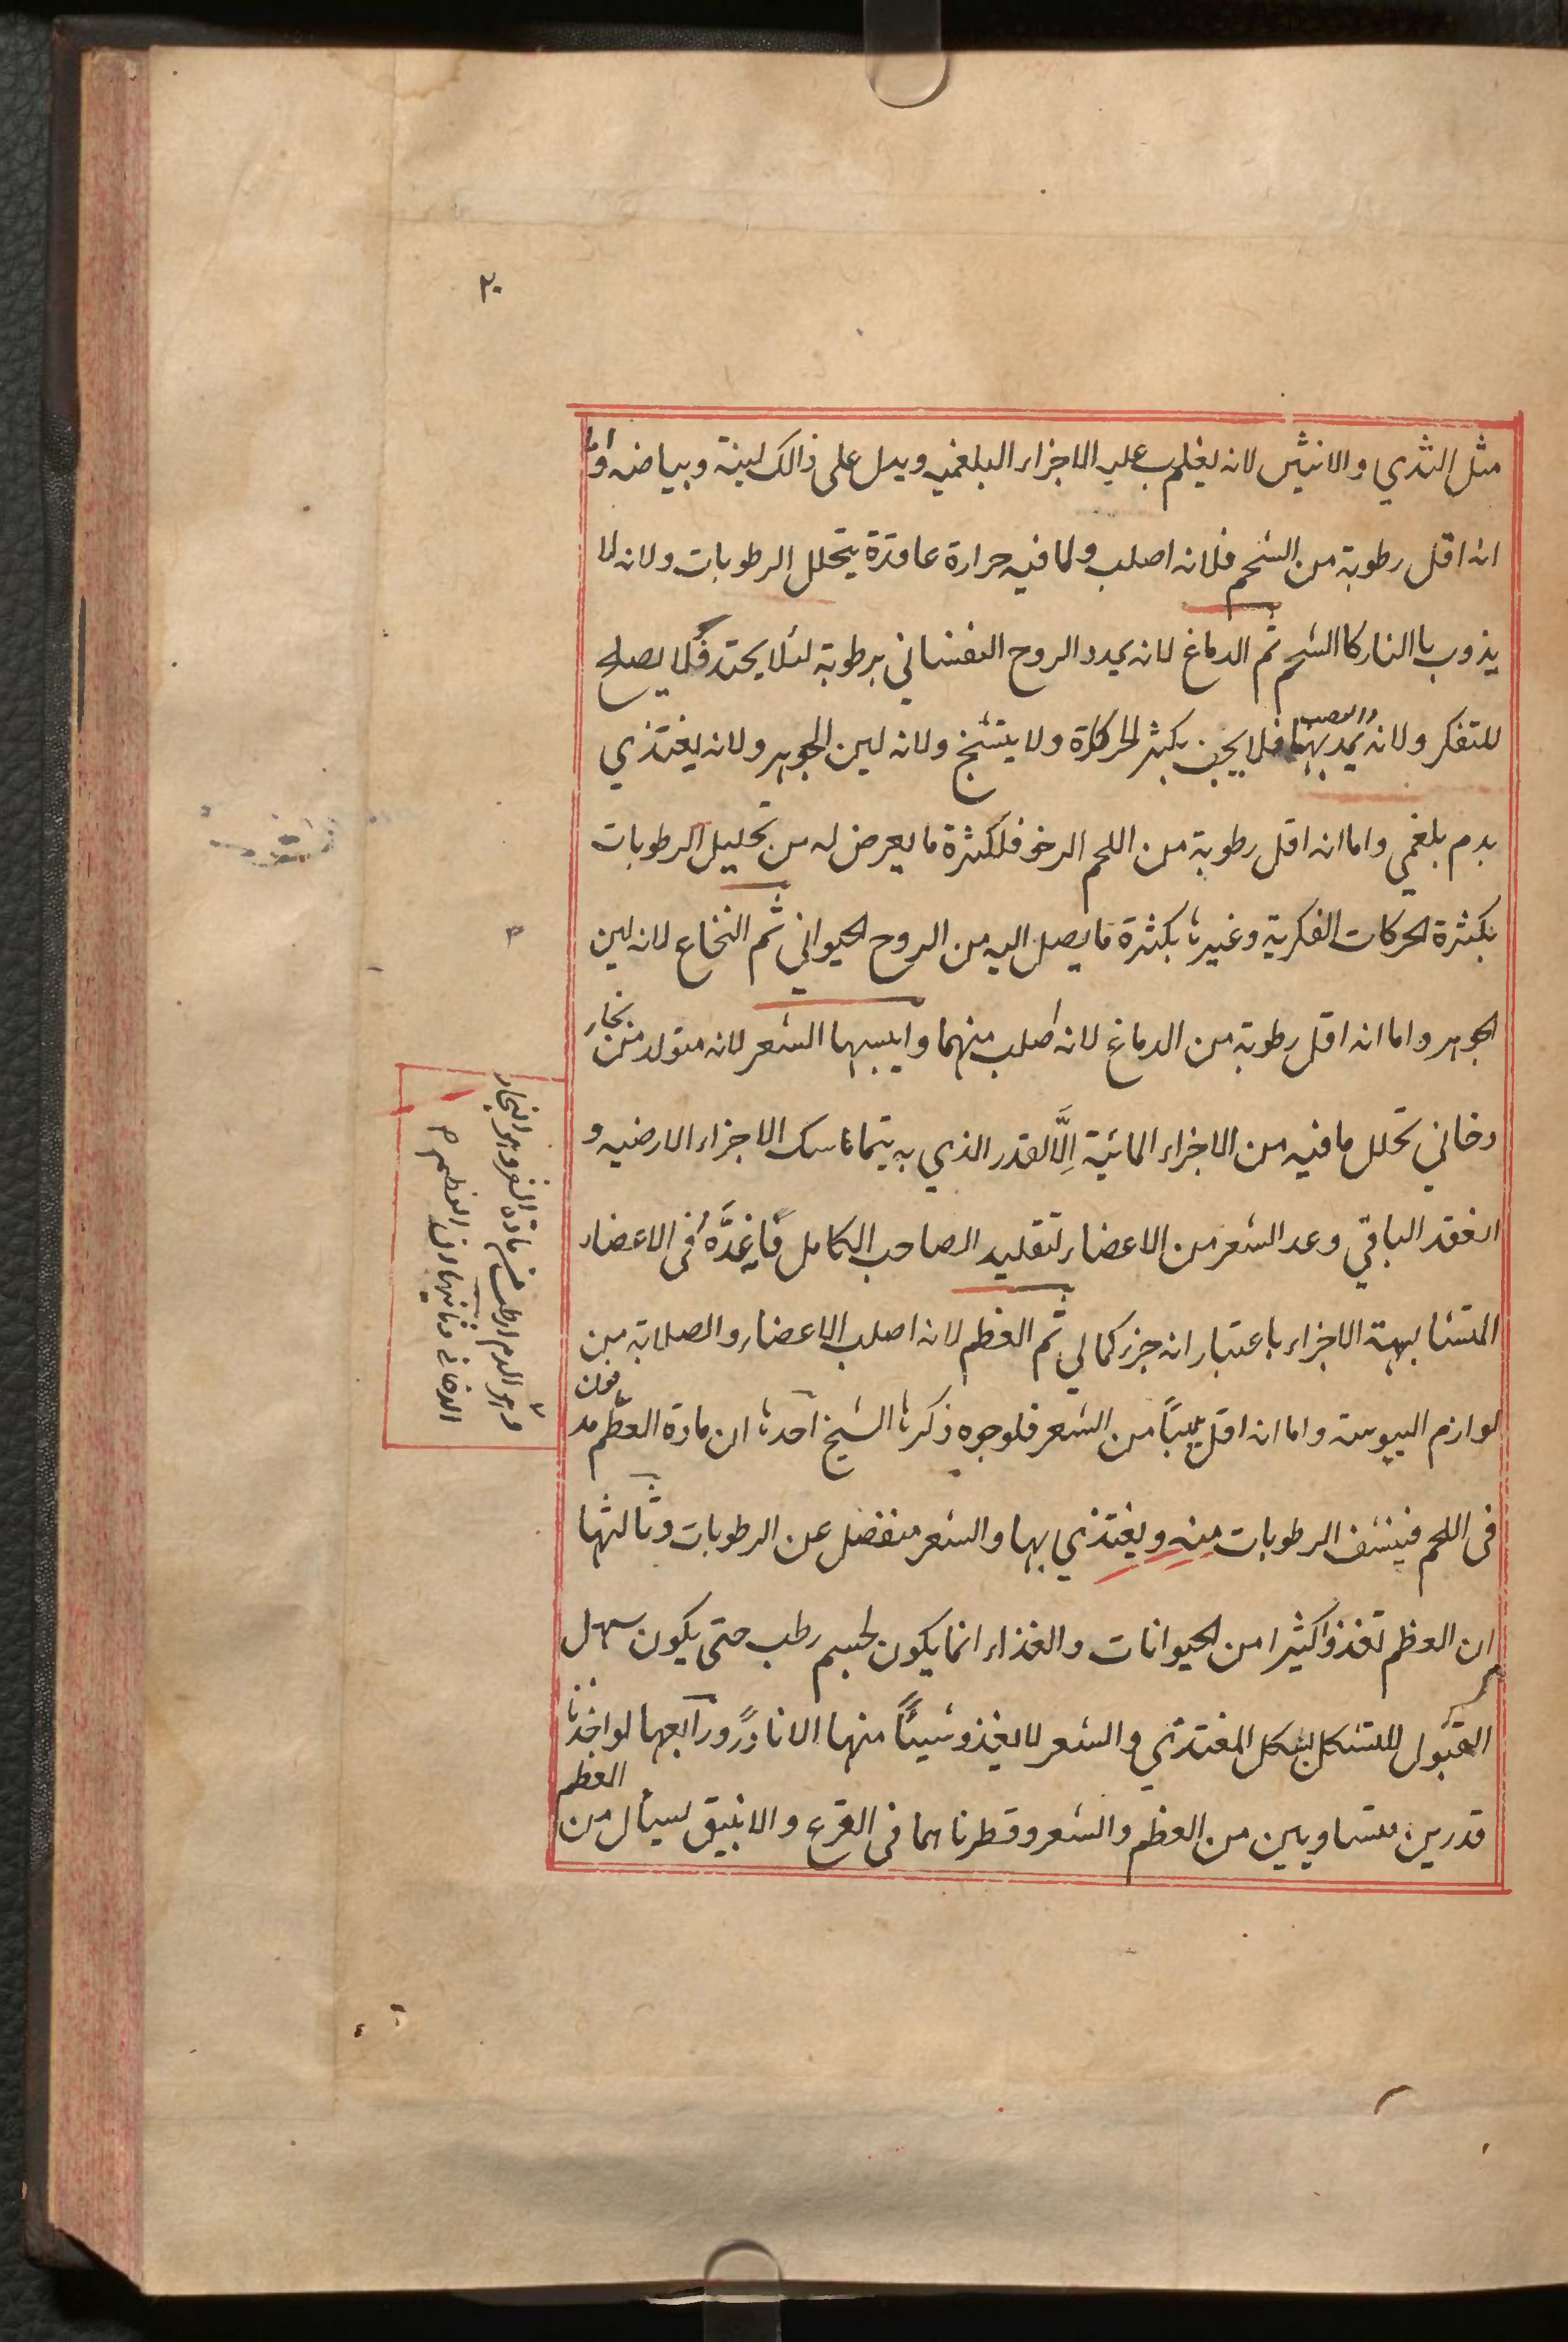 ٢٠
مثل الثدي والانثيين لانه يغلب عليه الاجزاء البلغميه ويدل على ذالك لينة وبياضه واما
انه اقل رطوبة من الشحم فلانه اصلب ولما فيه حرارة عاقدة يتحلل الرطوبات ولانه لا
يذوب باالنار كاالشحم ثم الدماغ لانه يمدد الروح النفساني برطوبة لئلا يحتد فلا يصلح
للتفكر ولانه يمد بها والعصب فلا يجف بكثر الحركاة ولا يتشنج ولانه لين الجوهر ولانه يغتذي
بدم بلغمي واما انه اقل رطوبة من اللحم الرخو فلكثرة ما يعرض له من تحليل الرطوبات
بكثرة الحركات الفكرية وغيرها بكثرة ما يصل اليه من الروح الحيواني ثم النخاع لانه لين
الجوهر واما انه اقل رطوبة من الدماغ لانه اصلب منهما وايبسها الشعر لانه متولد من بخار
دخاني تحلل ما فيه من الاجزاء المائية اِلَّا القدر الذي به يتماسك الاجزاء الارضيه و
انعقد الباقي وعد الشعر من الاعضاء لتقليد الصاحب الكامل فانه عَدَّهُ في الاعضاء
المتشابهة الاجزاء باعتبار انه جزء كمالي ثم العظم لانه اصلب الاعضاء والصلابة من
لوازم اليبوسة واما انه اقل يبساً من الشعر فلوجوه ذكرها الشيخ احدها ان مادة العظم مدفون
في اللحم فينشف الرطوبات منه ويغتذي بها والشعر منفصل عن الرطوبات وثالثها
ان العظم تغذوا كثيرا من الحيوانات والغذاء انما يكون لجسم رطب حتى يكون سهل
القبول للتشكل بشكل المغتذي والشعر لا يغذو شيئاً منها الا نادراً ورابعها لو اخذنا
قدرين متساويين من العظم والشعر وقطرناهما في القرع والانبيق لسيال من العظم
وهو الدم ارطب من مادة الشعر وهو البخار
الدخاني وثانيها ان العظم